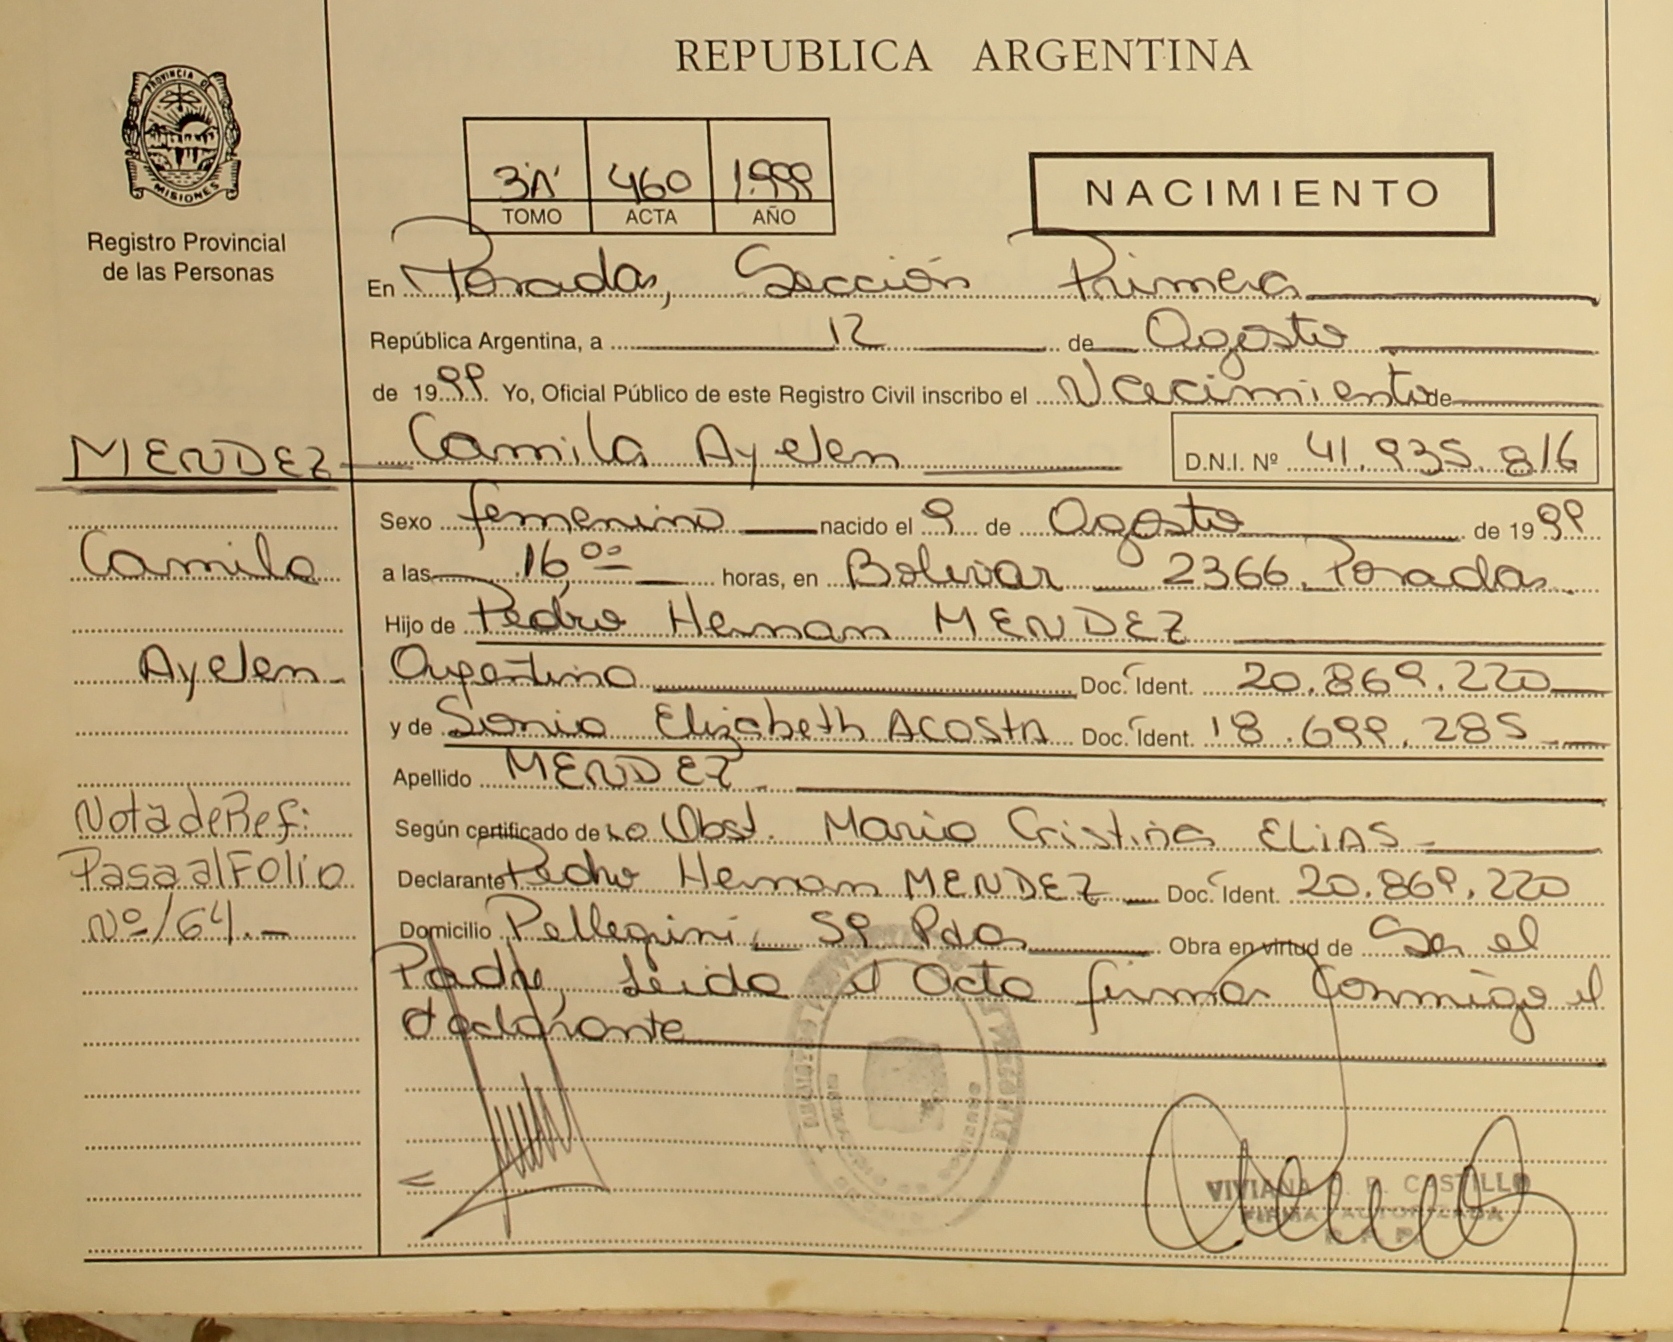 REPUBLICA ARGENTINA
PROVINCIA DE MISIONES
Registro Provincial
de las Personas
3"A" 460 1.999
TOMO ACTA AÑO
NACIMIENTO
En Posadas, Sección Primera
República Argentina, a 12 de Agosto
de 1999 Yo, Oficial Público de este Registro Civil inscribo el Nacimiento de
MENDEZ Camila Ayelen D.N.I. Nº 41.935.816
Sexo femenino nacido el 9 de Agosto de 1999
Camila
a las 16,00 horas, en Bolivar 2366. Posadas
Hijo de Pedro Hernan MENDEZ
Ayelen
Argentino Doc. Ident. 20.869.220
y de Sonia Elizabeth ACOSTA Doc. Ident. 18.699.285
Apellido MENDEZ
Nota de Ref:
Según certificado de La Obst. Maria Cristina ELIAS
Pasa al Folio
Declarante Pedro Hernan MENDEZ Doc. Ident. 20.869.220
Nº 164.-
Domicilio Pellegrini 59 Pdas Obra en virtud de Ser el
Padre, Leida el Acta firma conmigo el
declarante
VIVIANA R. CASTILLO
FIRMA AUTORIZADA